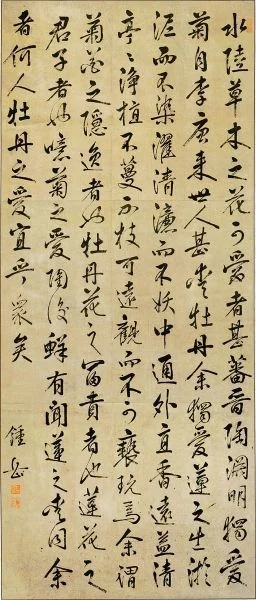 水陸草木之花可愛者甚蕃晉陶淵明獨愛
菊自李唐來世人甚愛牡丹余獨愛蓮之出淤
泥而不染濯清漣而不妖中通外直香遠益清
亭〻淨植不蔓不枝可遠觀而不可褻玩焉余謂
菊花之隱逸者也牡丹花之富貴者也蓮花之
君子者也噫菊之愛陶後鮮有聞蓮之愛同余
者何人牡丹之愛宜乎眾矣
鍾岳